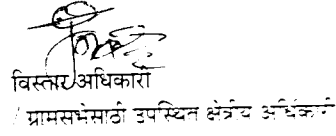 विस्तार अधिकारी
/ ग्रामसभेसाठी उपस्थित क्षेत्रीय अधिकारी